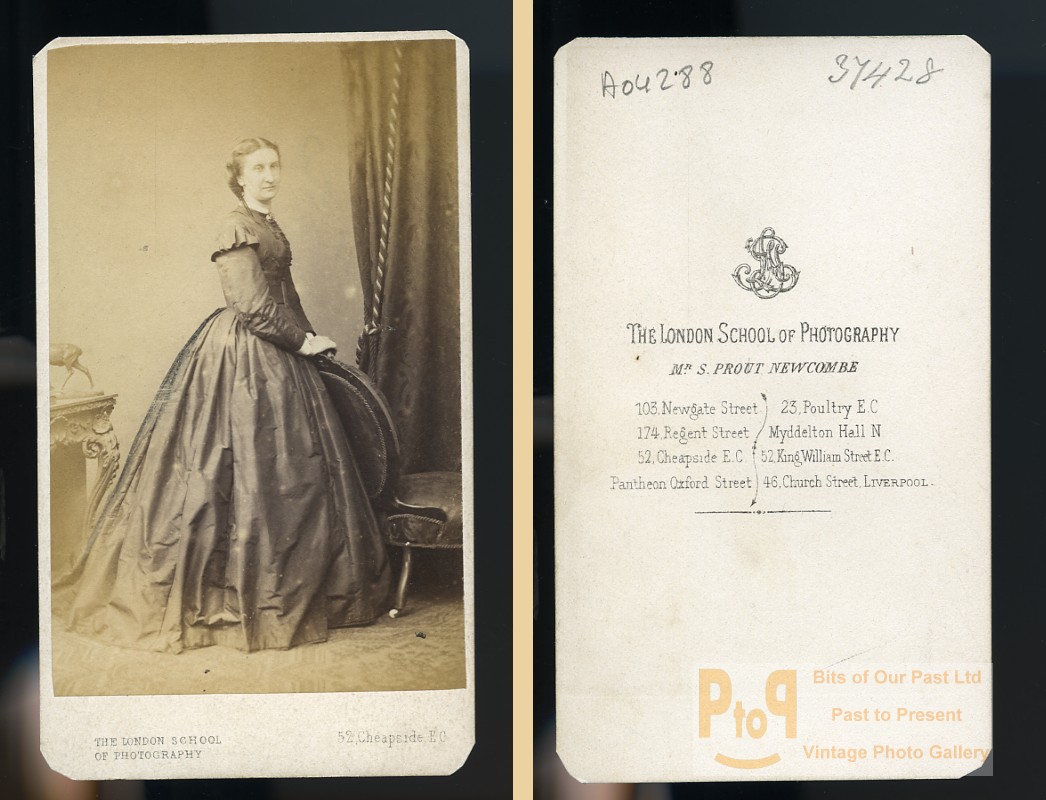 THE LONDON SCHOOL
OF PHOTOGRAPHY
52, Cheapside E.C
A04288
37428
THE LONDON SCHOOL OF PHOTOGRAPHY
MR S. PROUT NEWCOMBE
103, Newgate Street 23, Poultry E.C
174, Regent Street Myddelton Hall N
52, Cheapside E.C 52, King William Street E.C.
Pantheon Oxford Street 46, Church Street, LIVERPOOL.
PtoP
Bits of Our Past Ltd
Past to Present
Vintage Photo Gallery